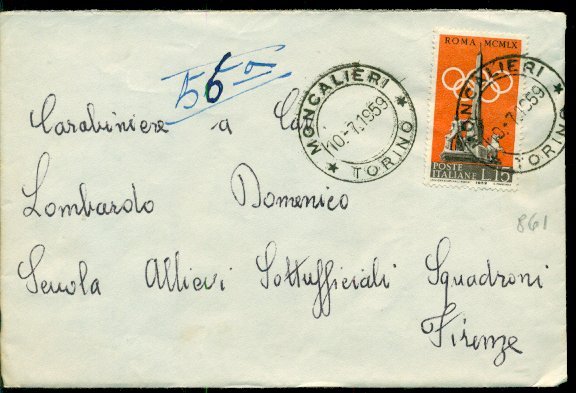 ROMA MCMLX
MONCALIERI
10.-7.1959
TORINO
MONCALIERI
10.-7.1959
TORINO
POSTE
ITALIANE L.15
1959
Carabiniere a Ca
Lombardo Domenico
861
Scuola Allievi Sottufficiali Squadroni
Firenze